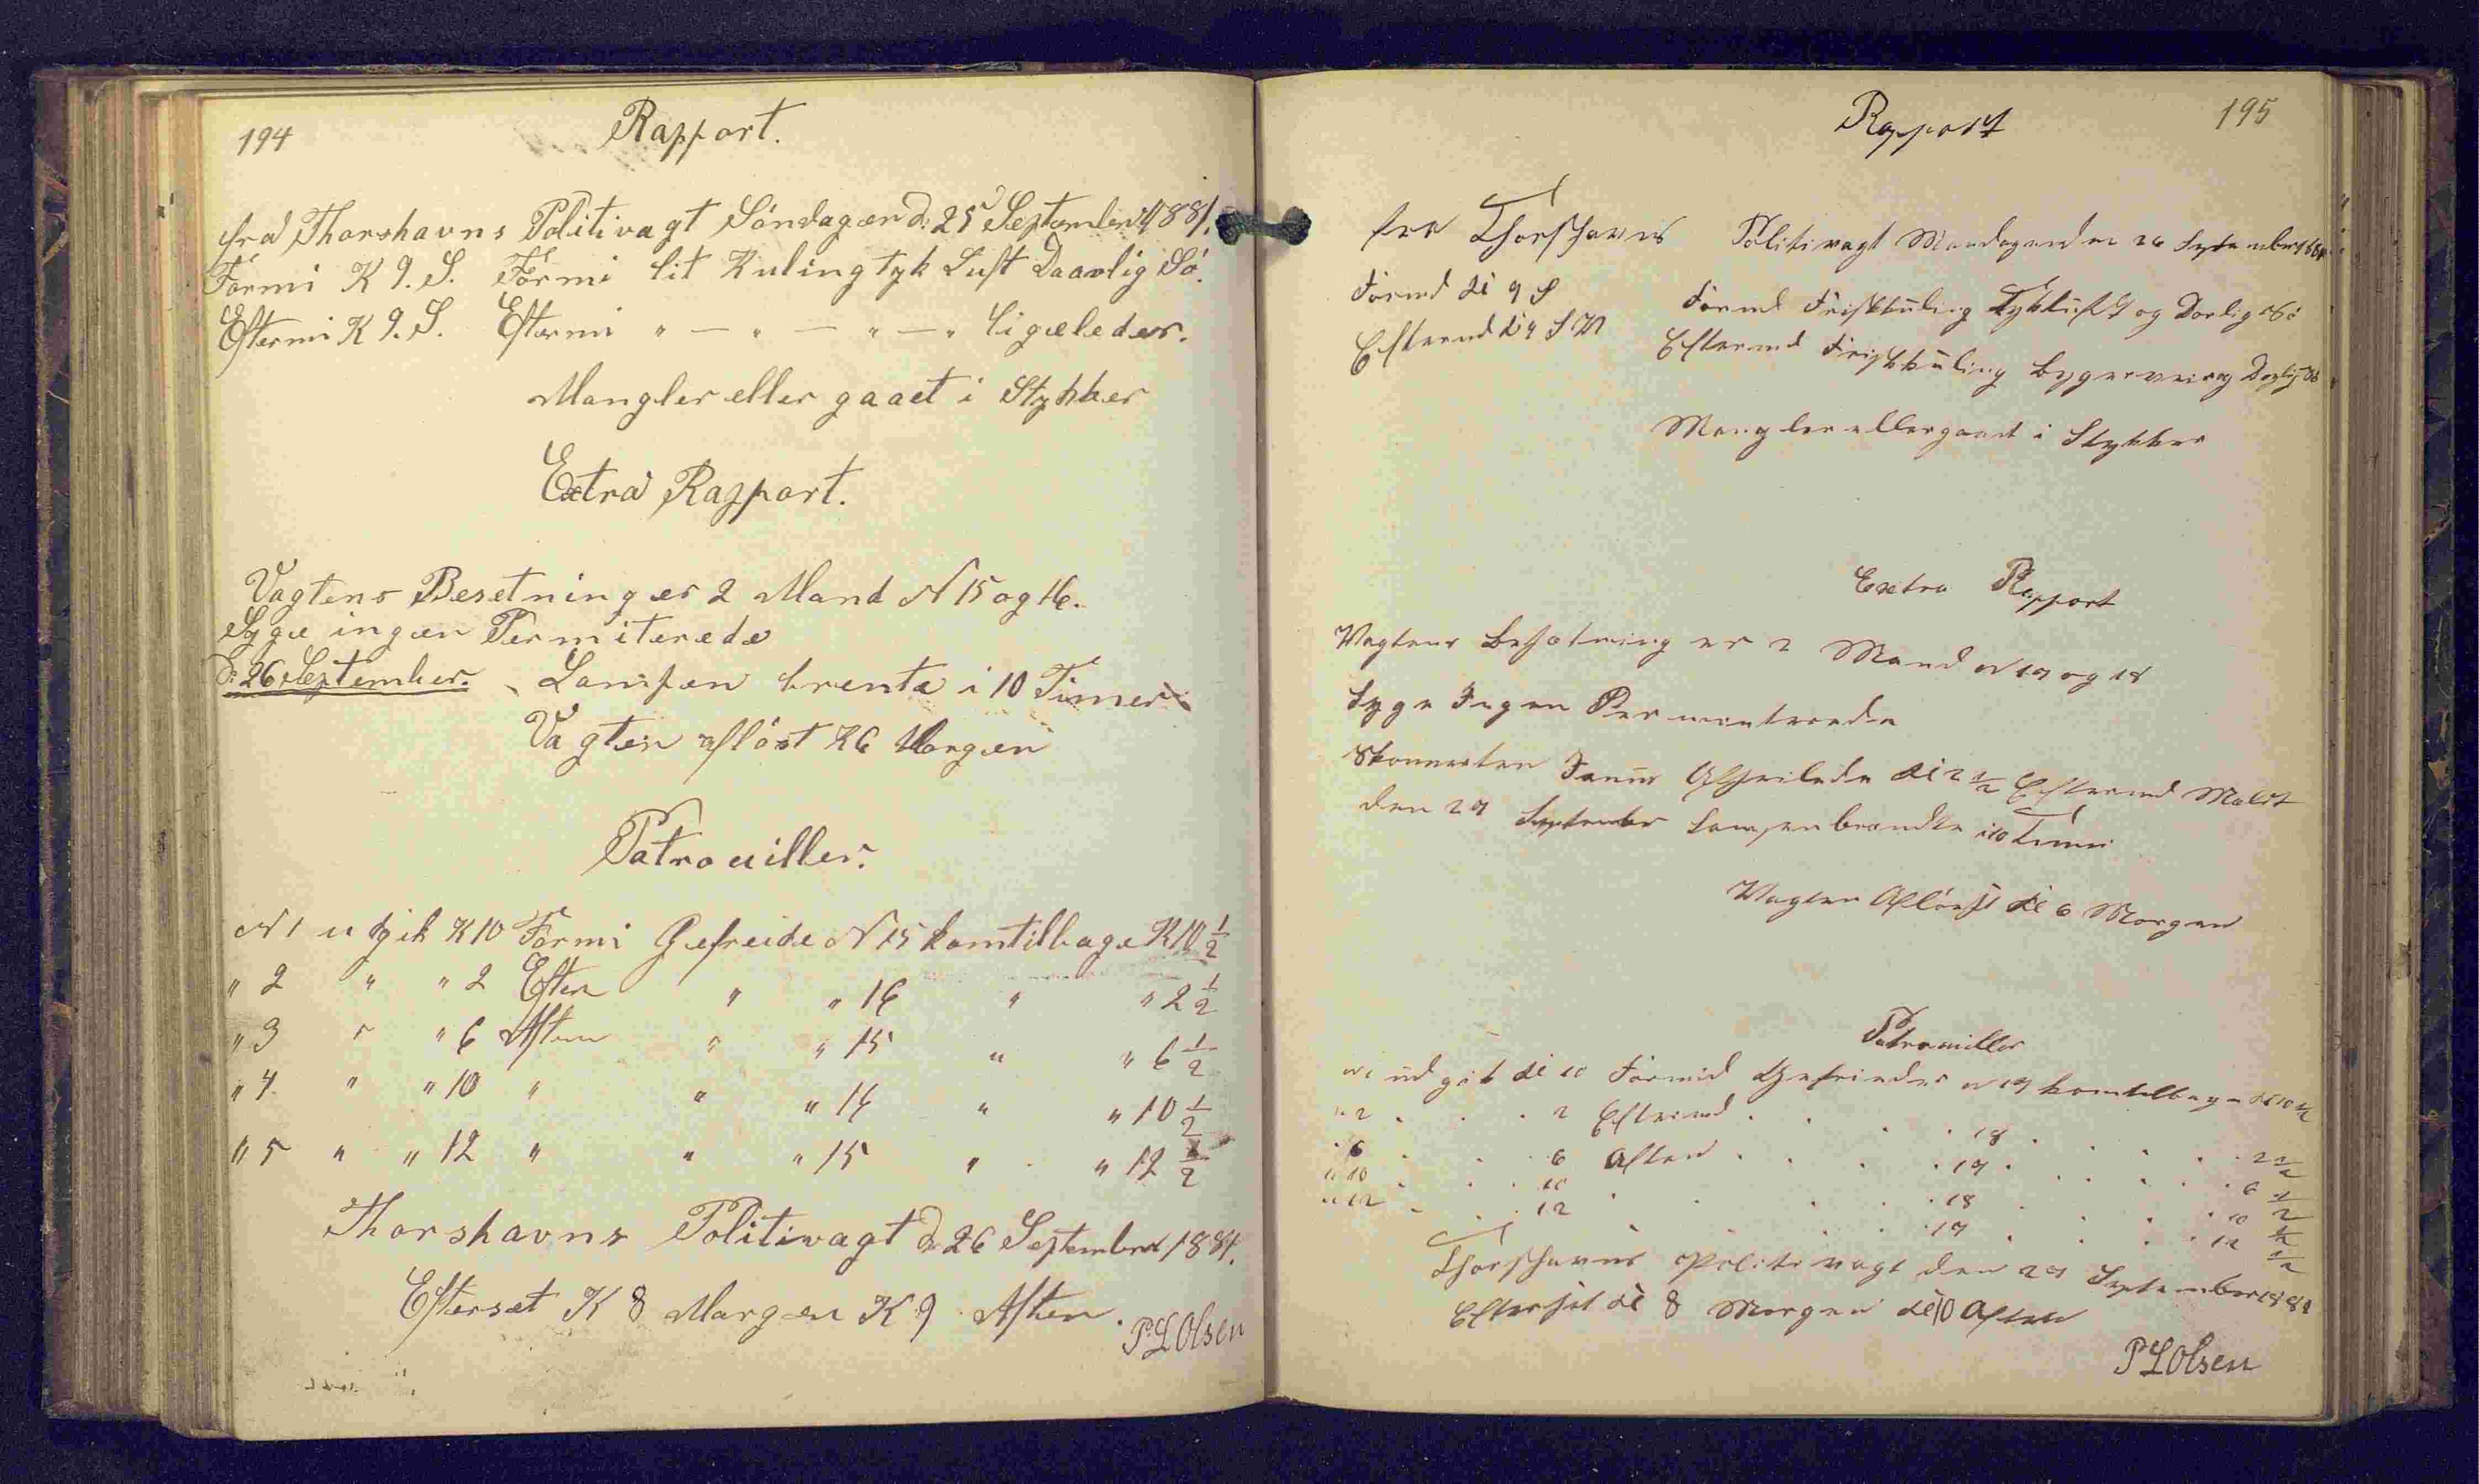 194
Rapport.
fra Thorshavns Politivagt Söndagen d: 25 September 1881.
Formi K 9. S. Formi lit Kuling tyk Luft Daarlig Sö.
Eftermi K 9. S. Eftermi " — " — " — " ligeledes.
Mangler eller gaaet i Stykker
Extra Rapport.
Vagtens Besetning er 2 Mand N 15 og 16.
Syge ingen Permiterede
d: 26 September. Lampen brente i 10 Timer
Vagten aflöst K 6 Morgen
Patrouiller.
N 1 udgik K 10 Formi Gefreide N 15 kom tilbage K 10 1/2
" 2 " " 2 Efter " " 16 " " 2 1/2
" 3 " " 6 Aften " " 15 " " 6 1/2
" 4 " " 10 " " " 16 " " 10 1/2
" 5 " " 12 " " " 15 " " 12 1/2
Thorshavns Politivagt d: 26 September 1881.
Efterset K 8 Morgen K 9 Aften.
P L Olsen
195
Rapport
fra Thorshavns Politivagt Mandagen den 26 September 1881
Formd Kl 9 S Formd Friskkuling Tykluft og Dorlig Sö
Eftermd Kl 9 SW Eftermd Friskkuling Bygerveir og Dorlig Sö
Mangler eller gaaet i Stykker
Extra Rapport
Vagtens Besætning er 2 Mand N 17 og 18
Syge Ingen Permenterede
Skonnerten Afseilede Kl 2 1/2 Eftermd
den 27 September Lampen brændte i 10 Timer
Vagten Aflöst Kl 6 Morgen
Patrouiller
N 1 udgik Kl 10 Formid Gefrieder N 17 kom tilbage Kl 10 1/2
" 2 . . 2 Eftermd . . 18 . . . 2 1/2
" 6 . . 6 Aften . . 17 . . . 6 1/2
" 10 . . 10 . . . 18 . . . 10 1/2
" 12 . . 12 . . . 17 . . . 12 1/2
Thorshavns Politivagt den 27 September 1881
Efterset Kl 8 Morgen Kl 10 Aften
P L Olsen